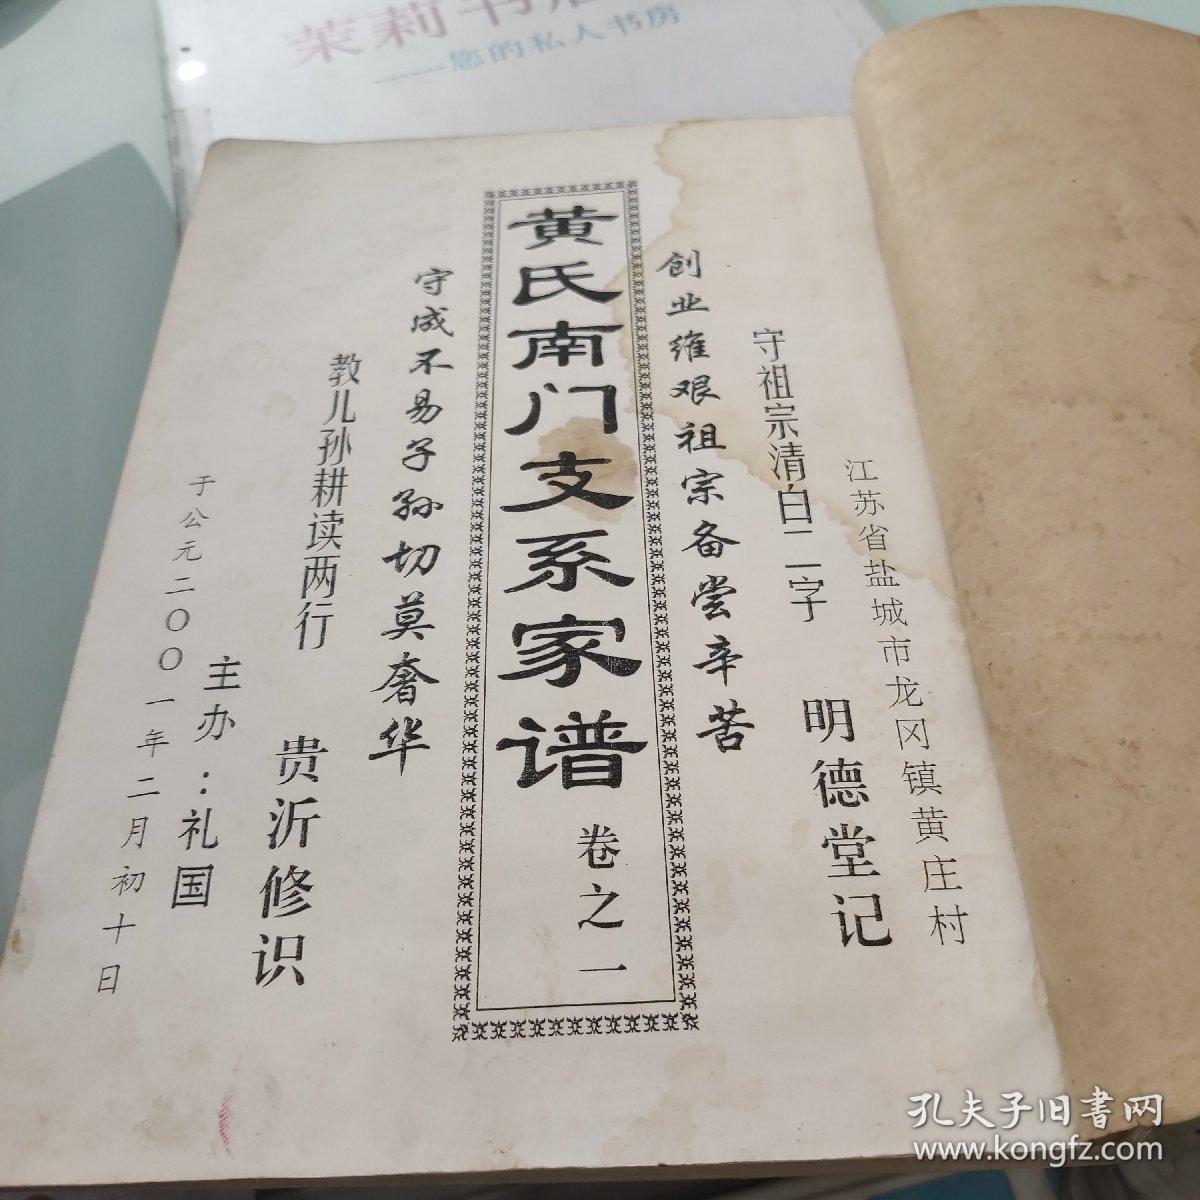 茉莉书店
------您的私人书房
江苏省盐城市龙冈镇黄庄村
明德堂记
守祖宗清白二字
创业维艰祖宗备尝辛苦
黄氏南门支系家谱 卷之一
守成不易子孙切莫奢华
教儿孙耕读两行
贵沂修识
主办：礼国
于公元二〇〇一年二月初十日
孔夫子旧书网
www.kongfz.com